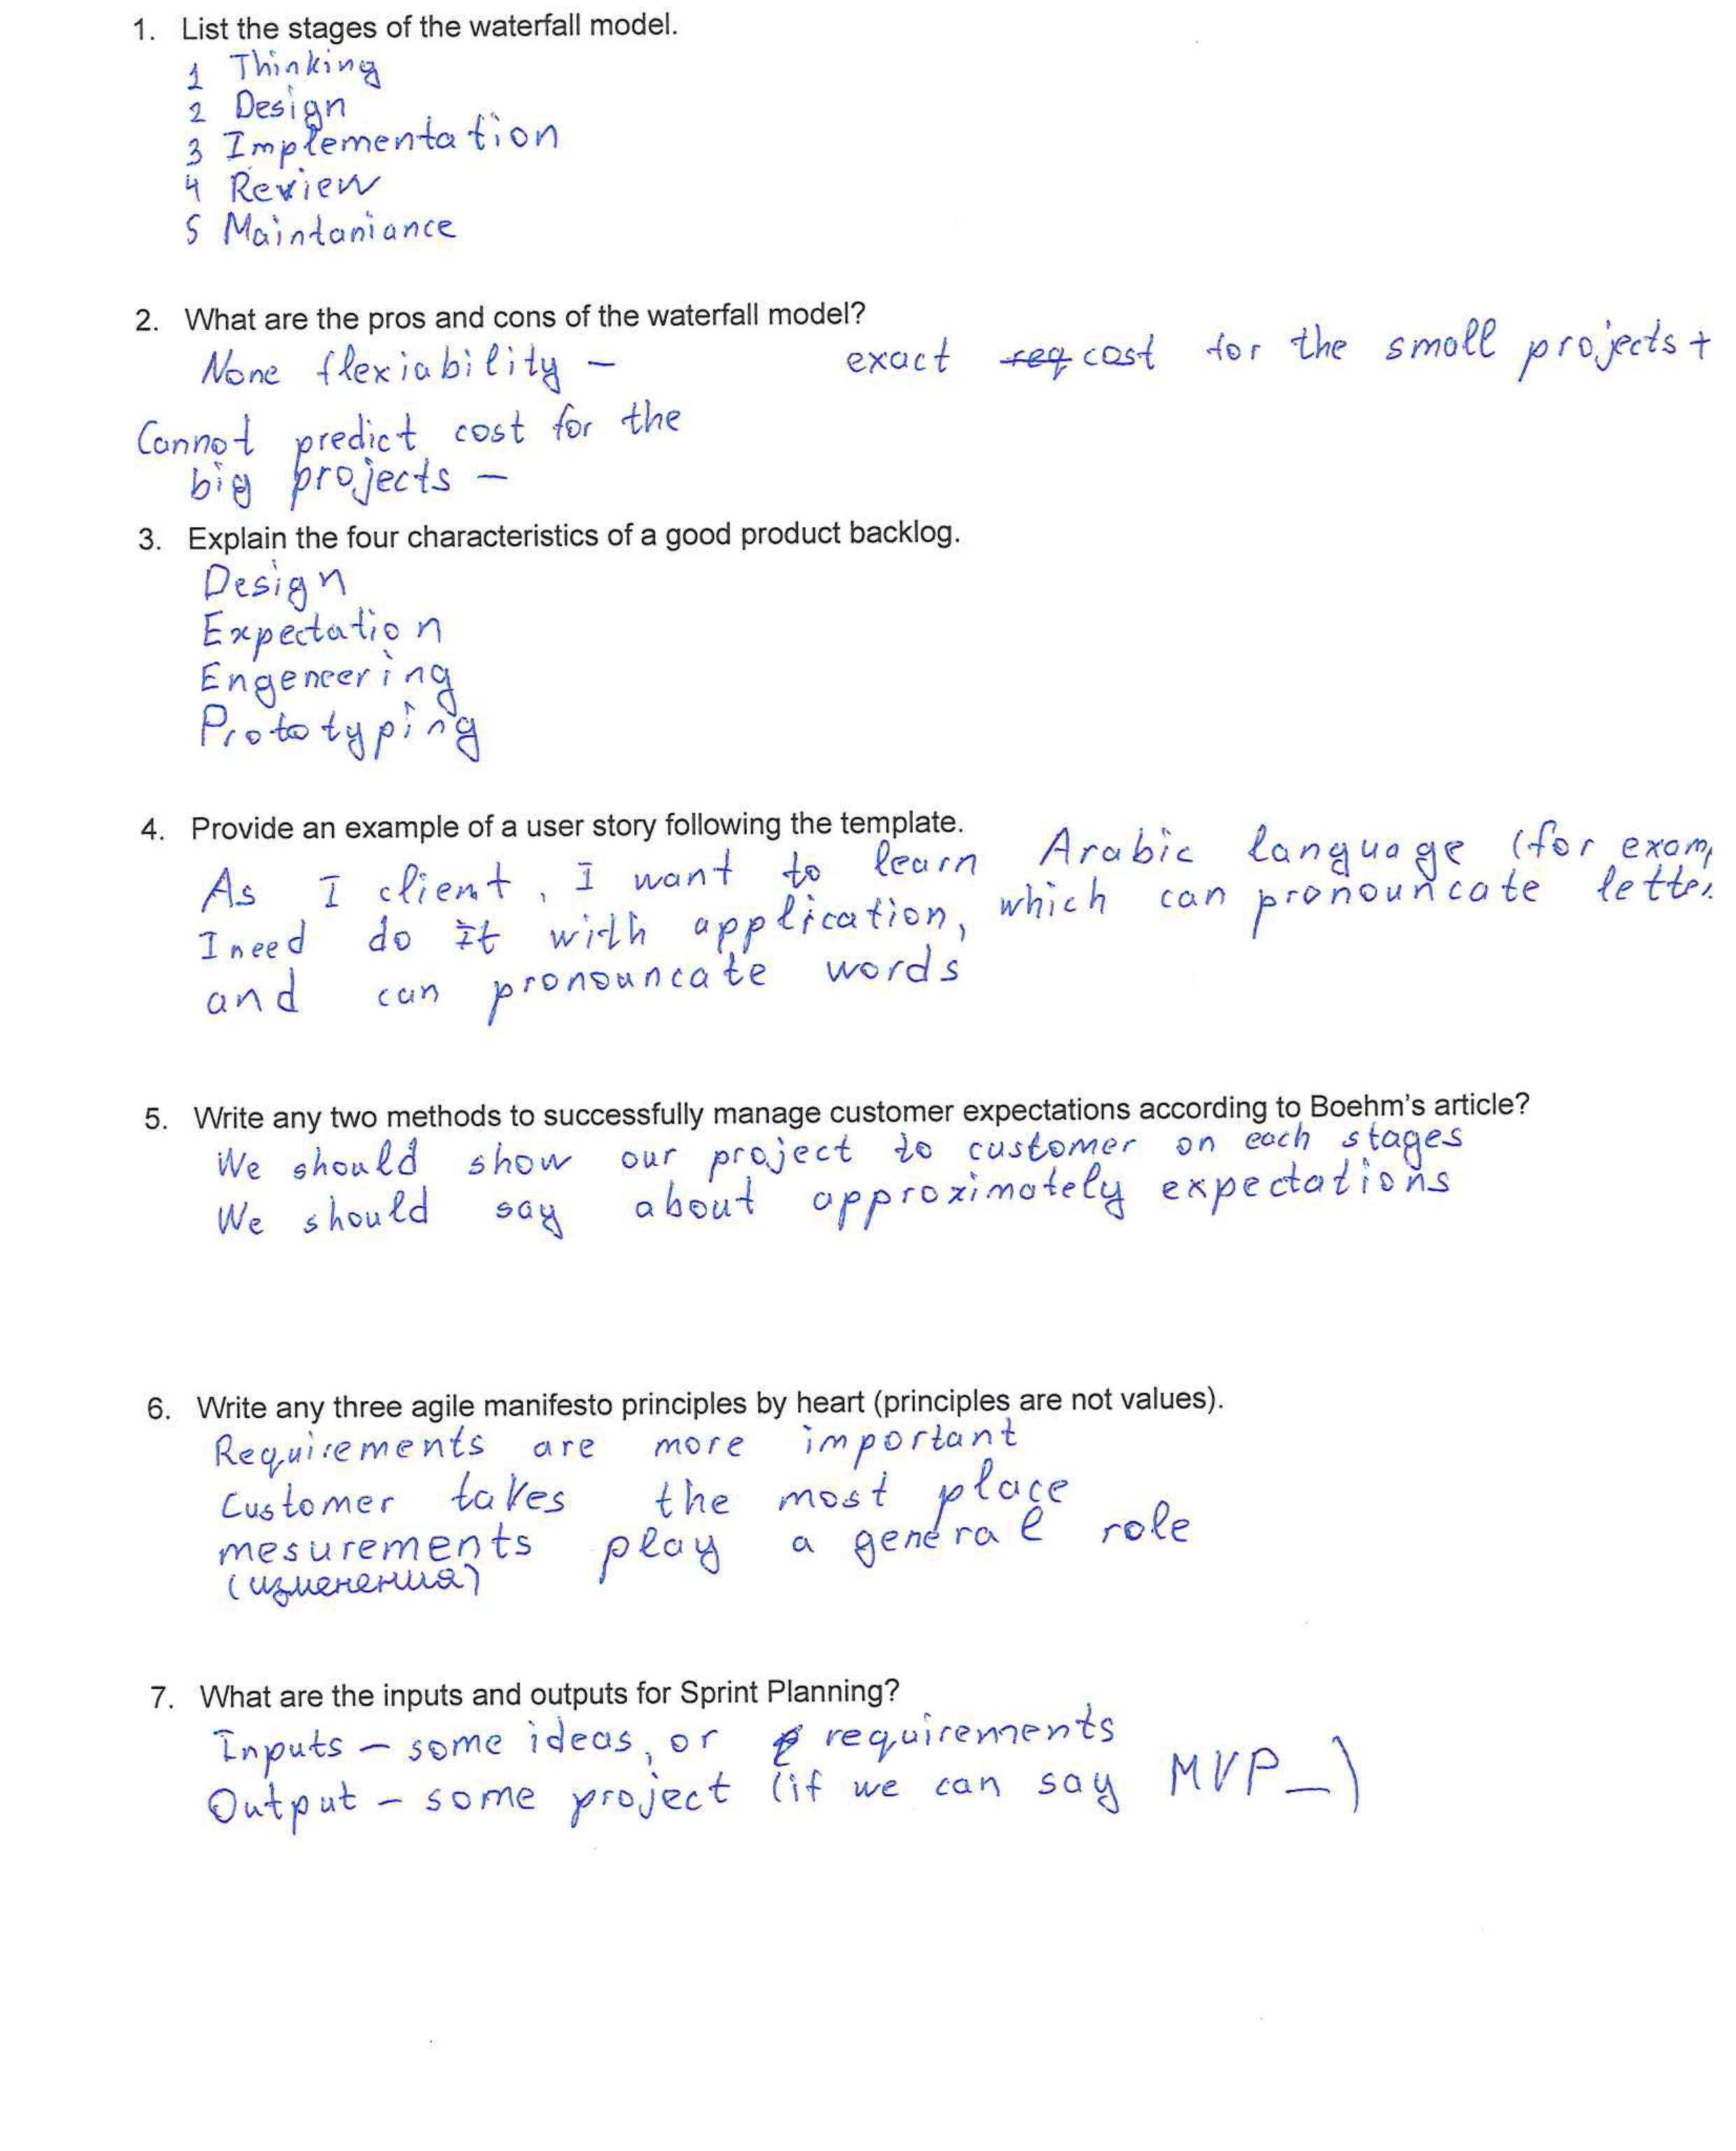 1. List the stages of the waterfall model.
1 Thinking
2 Design
3 Implementation
4 Review
5 Maintaniance
2. What are the pros and cons of the waterfall model?
None flexiability – exact req cost for the small projects +
Cannot predict cost for the
big projects –
3. Explain the four characteristics of a good product backlog.
Design
Expectation
Engeneering
Prototyping
4. Provide an example of a user story following the template.
As I client, I want to learn Arabic language (for exam
I need do it with application, which can pronouncate letter
and can pronouncate words
5. Write any two methods to successfully manage customer expectations according to Boehm's article?
We should show our project to customer on each stages
We should say about approximately expectations
6. Write any three agile manifesto principles by heart (principles are not values).
Requirements are more important
Customer takes the most place
mesurements play a general role
(изменения)
7. What are the inputs and outputs for Sprint Planning?
Inputs – some ideas, or requirements
Output – some project (if we can say MVP_)